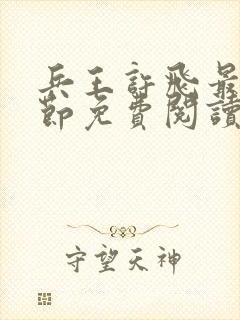 兵王許飛最
節免費閱讀
守望天神